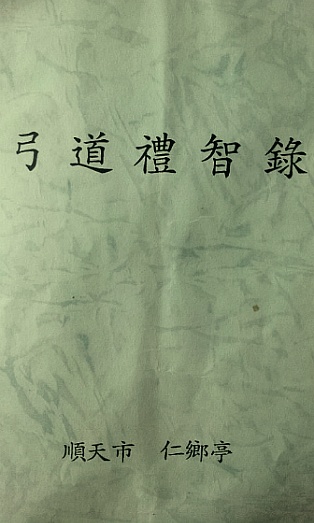 弓道禮智錄
順天市 仁鄉亭